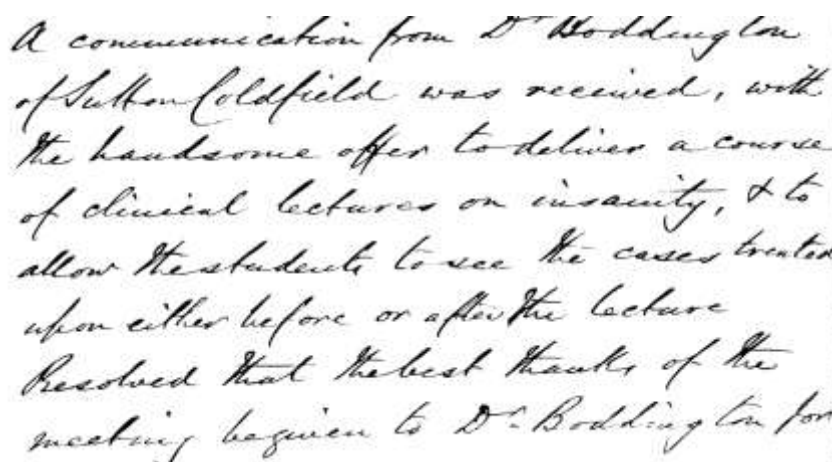 A communication from Dr Boddington
of Sutton Coldfield was received, with
the handsome offer to deliver a course
of clinical lectures on insanity, & to
allow the students to see the cases treated
upon either before or after the lecture
Resolved that the best thanks of the
meeting be given to Dr. Boddington for